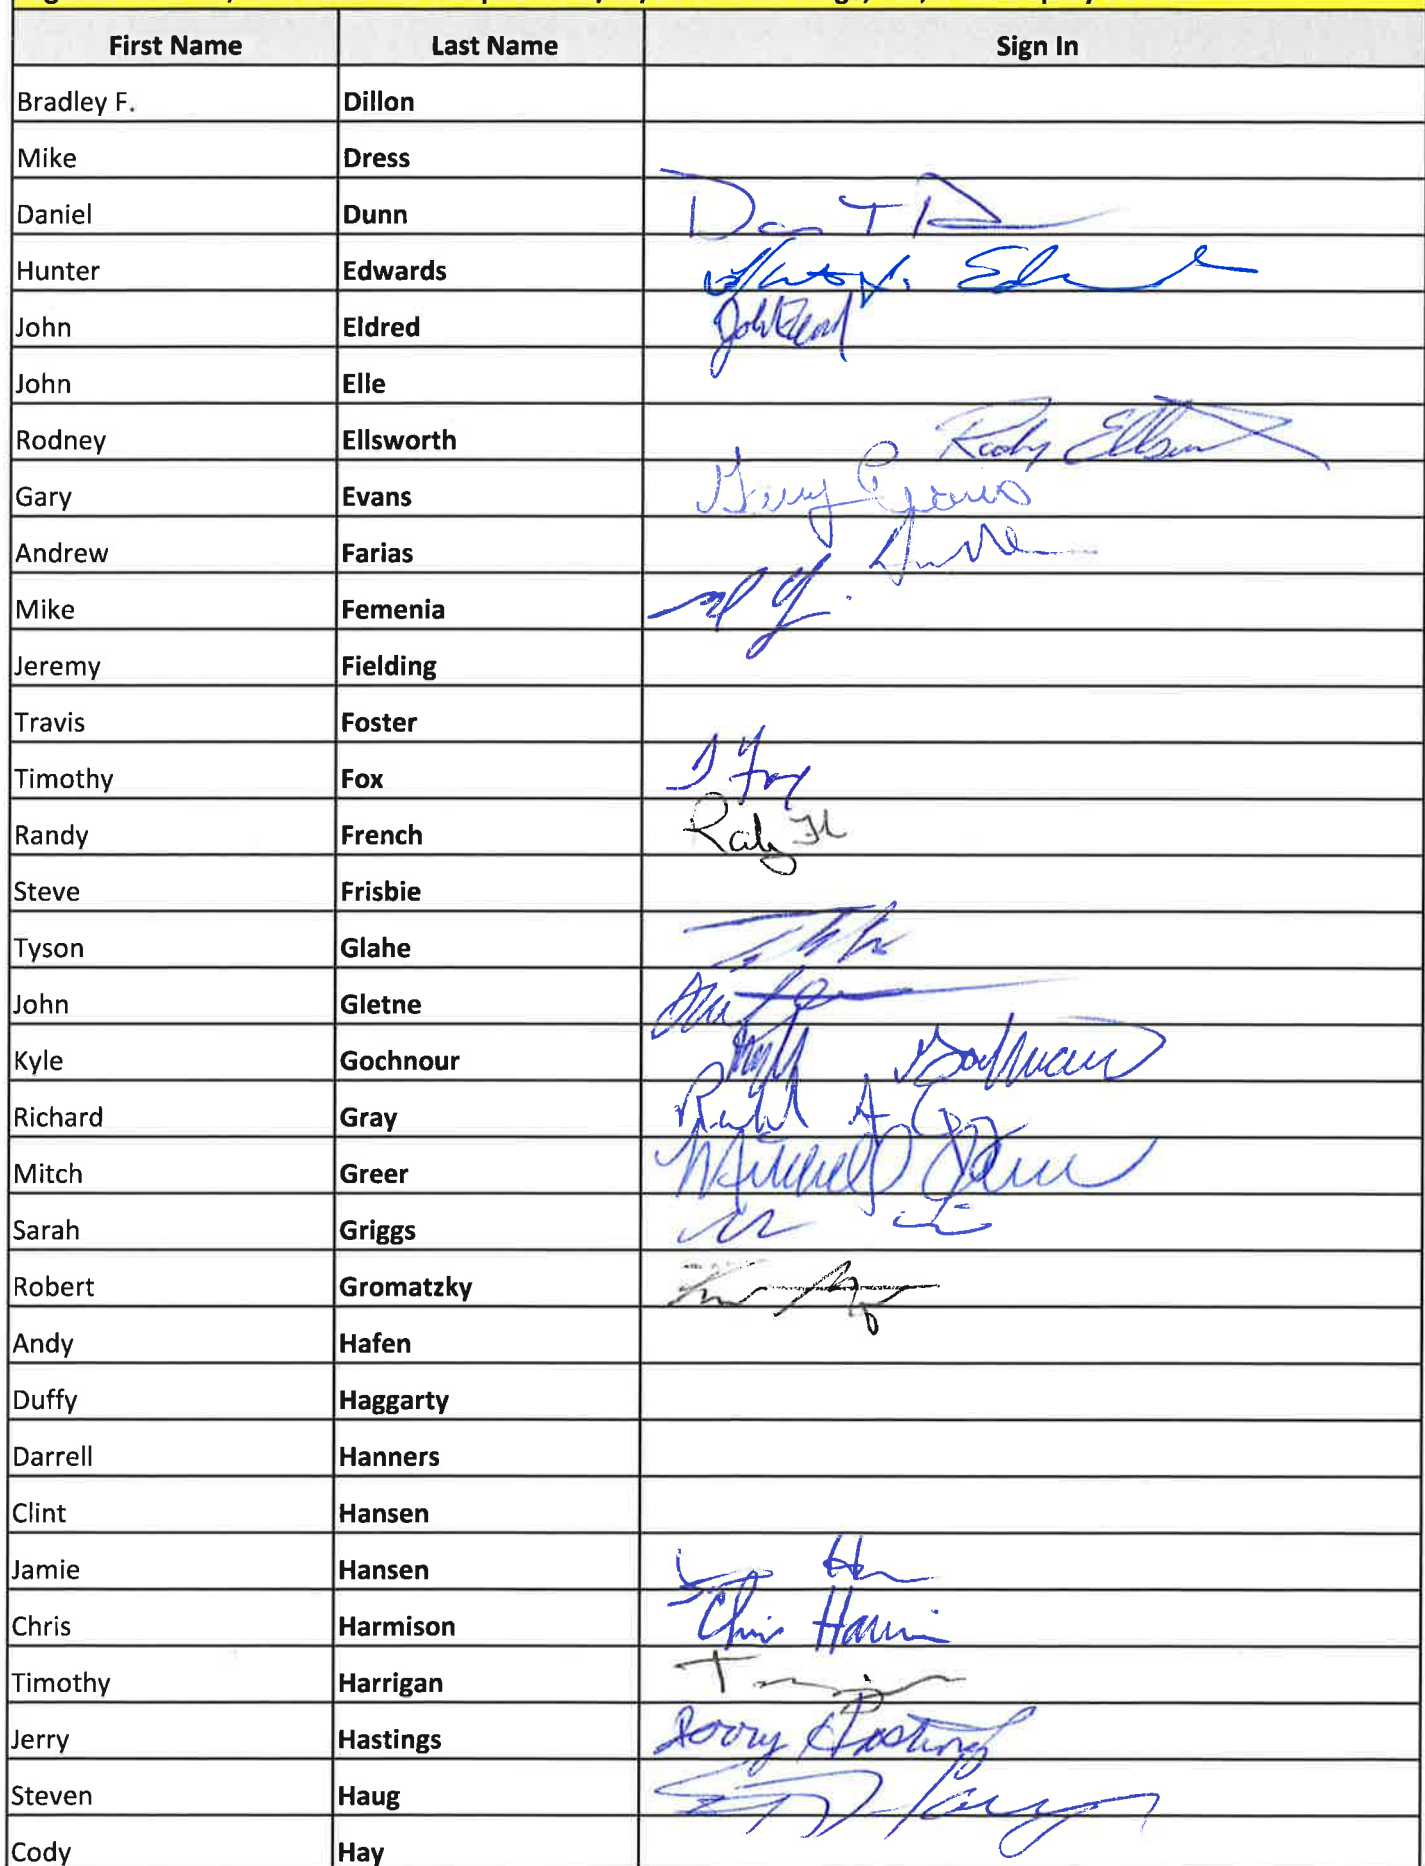 First Name Last Name Sign In
Bradley F. Dillon
Mike Dress
Daniel Dunn Dan T D
Hunter Edwards
John Eldred John Eldred
John Elle
Rodney Ellsworth Rodney Ellsworth
Gary Evans Gary Evans
Andrew Farias
Mike Femenia
Jeremy Fielding
Travis Foster
Timothy Fox T Fox
Randy French Randy
Steve Frisbie
Tyson Glahe
John Gletne
Kyle Gochnour Kyle Gochnour
Richard Gray Richard A
Mitch Greer Mitchell Greer
Sarah Griggs
Robert Gromatzky
Andy Hafen
Duffy Haggarty
Darrell Hanners
Clint Hansen
Jamie Hansen
Chris Harmison Chris Harmison
Timothy Harrigan
Jerry Hastings Jerry Hastings
Steven Haug
Cody Hay